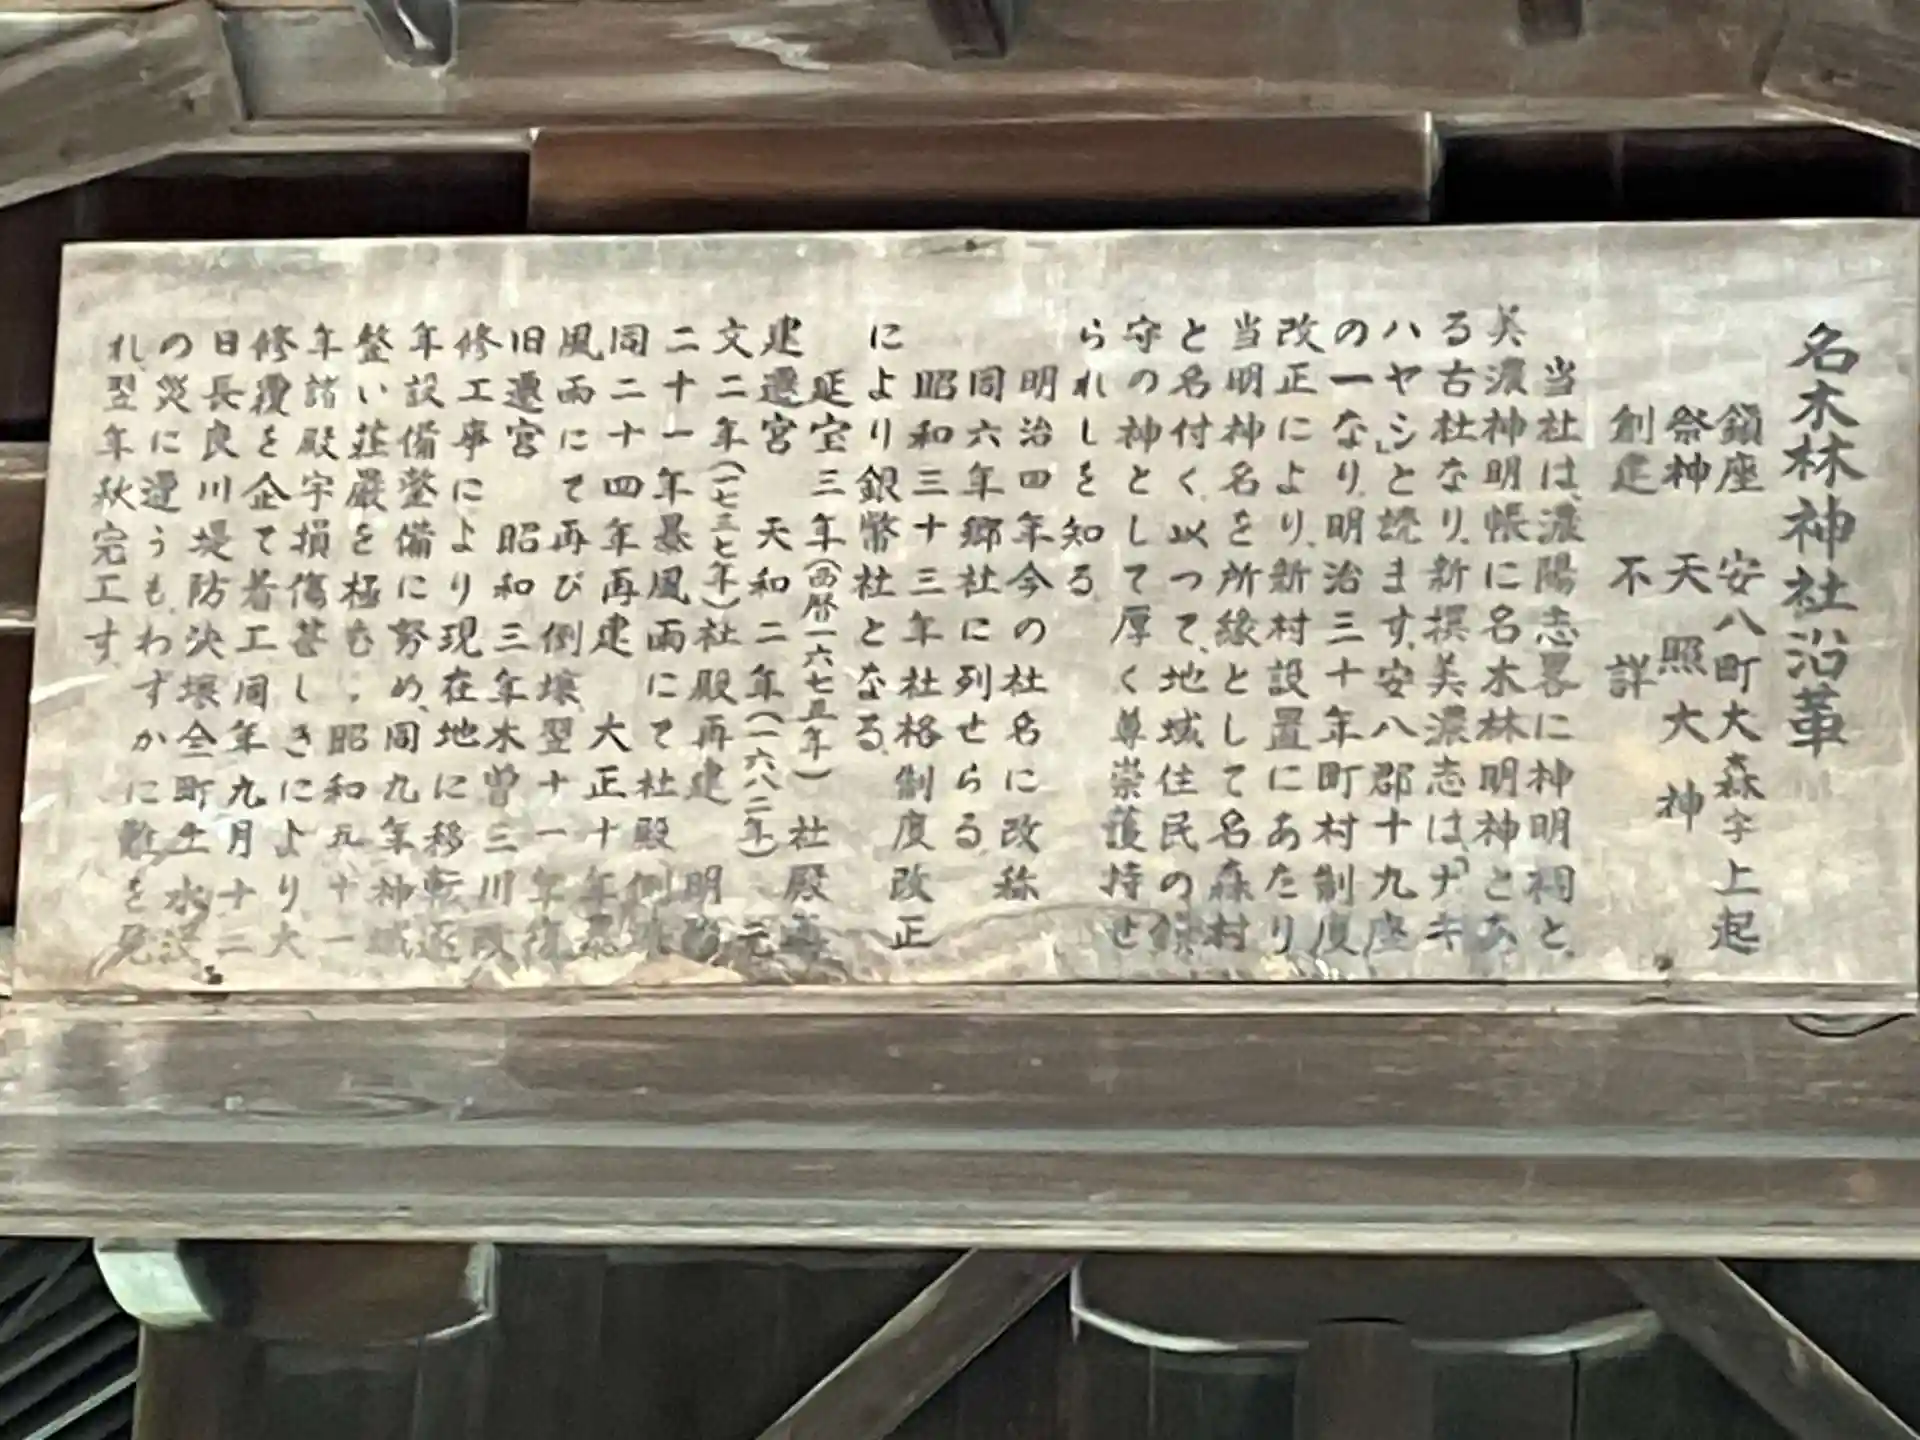 名木林神社沿革
鎮座 安八町大森字上起
祭神 天照大神
創建 不詳
当社は、濃陽志畧に神明祠と、
美濃神明帳に名木林明神とあ
る古社なり、新撰美濃志は「ナキ
ハヤシ」と読ます、安八郡十九座
の一なり、明治三十年町村制度
改正により、新村設置にあたり
当明神名を所縁として名森村
と名付く、以つて、地域住民の鎮
守の神として厚く尊崇護持せ
られしを知る
明治四年今の社名に改称
同六年郷社に列せらる
昭和三十三年社格制度改正
により銀幣社となる
延宝三年(西暦一六七五年)社殿再
建遷宮 天和二年(一六八二年)元
文二年(一七三七年)社殿再建 明治
二十一年暴風雨にて社殿倒壊
同二十四年再建 大正十年暴
風雨にて再び倒壊翌十一年復
旧遷宮 昭和三年木曽三川改
修工事により現在地に移転逐
年設備整備に努め、同九年神域
整い荘厳を極む、昭和五十一
年諸殿宇損傷甚しきにより大
修覆を企て着工同年九月十二
日長良川堤防決壊全町土水没
の災に遭うも、わずかに難を免
れ、翌年秋完工す